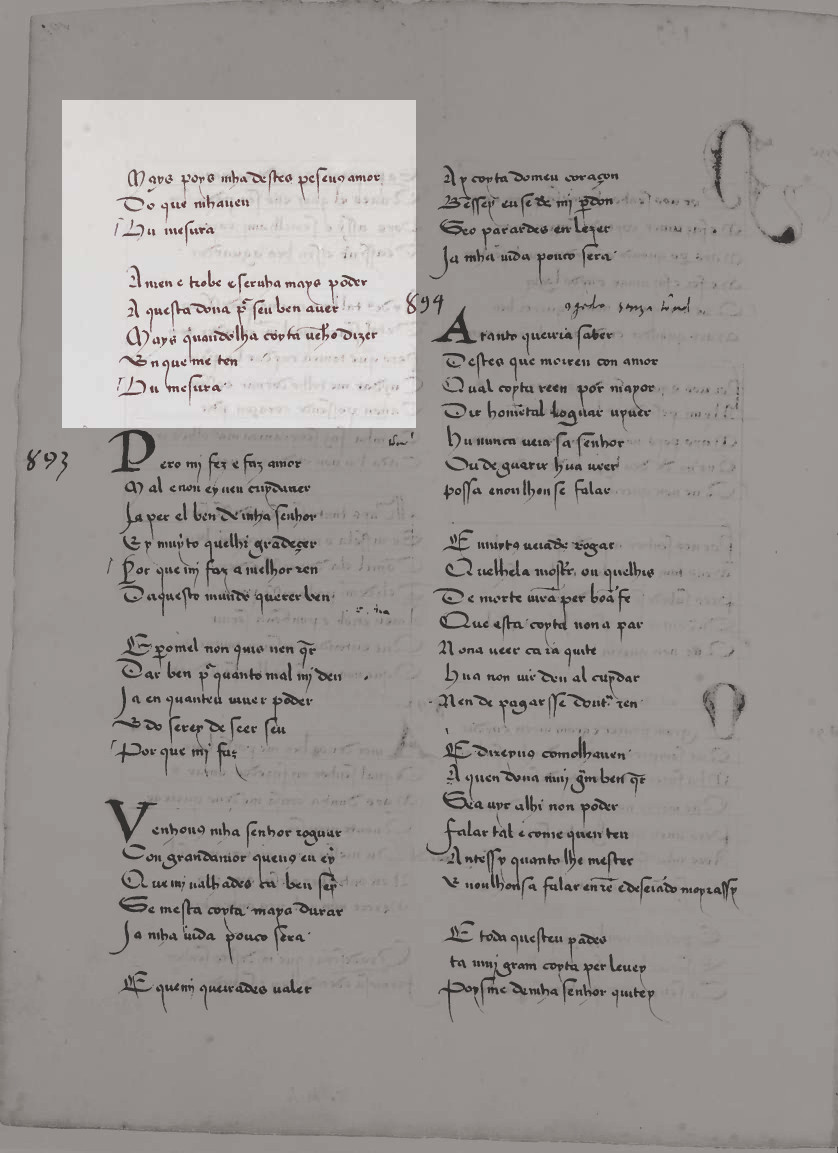 Mays poys mha destes peseuꝯ amor
Do que mhauen
Hu mesura
Amen e trobe e seruha mays poder
A questa dona pᵃ seu ben auer
Mays quandolha coyta ueh̃o dizer
En que me ten
Hu mesura
893
Pero mi fez e faz amor
Mal e non ey neu cuydaner
Ja per el ben de mha senhor
Ey muyto quelhi gradeçer
Por que mi faz a melhor ren
Daquesto mundo querer ben
E pomel non quis nen qr̃
Dar ben pᵃ quanto mal mi deu
Ja en quanteu uiuer poder
Eu do serey de seer seu
Por que mi faz
Venhouꝯ mha senhor roguar
Con grandamor queuꝯ eu ey
Que mi ualhades ca ben sey
Se mesta coyta maya durar
Ja mha uida pouco sera
E quemj queirades ualer
Ay coyta domeu coraçon
Bessey eu se de mi p̱don
Seo parardes en lezer
Ja mha uida pouco sera
894
A tanto queiria saber
Destes que moiren con amor
Qual coyta teen por mayor
Dir homẽ tal loguar uyuer
Hu nunca ueia sa senhor
Ou de guarir hua ueer
possa enoulhonse falar
E muytꝯ ueiade rogar
Quelhela mostr̃ ou quelhis
De morte uirã per boã fe
Que esta coyta non a par
Nona ueer ca ia quite
Hua non uir don al cuydar
Nen de pagarsse doutᵃ ren
E direyuꝯ comolhauen
A quen dona muj grã ben qr̃
Sea uyr alhi non poder
falar tal e come quen ten
Antessy quanto lhe mester
E noulhousa falar en rẽ e deseiãdo moyrassy
E toda questeu pades
ta muj gram coyta per leuey
Poysme demha senhor quitey